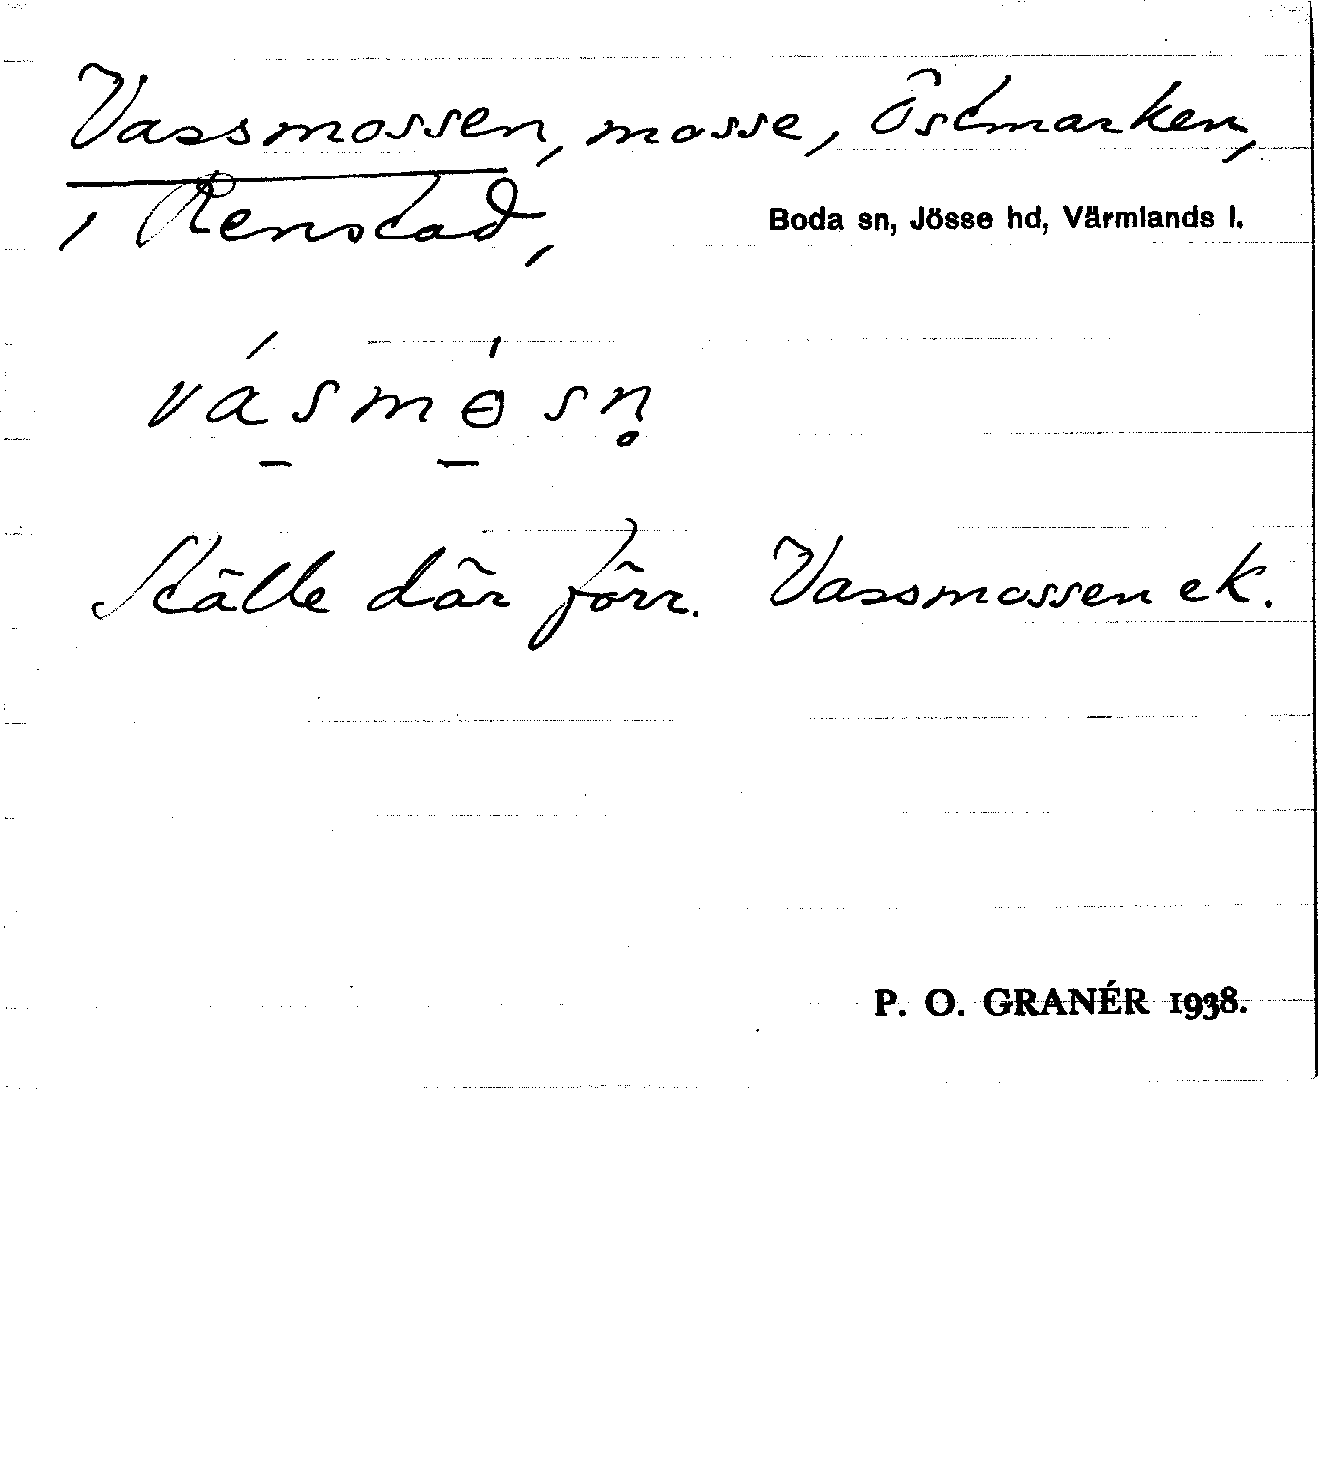 Vassmossen, mosse, Östmarken,
i Renstad,
Boda sn, Jösse hd, Värmlands l.
vásmɵ́sn̥
Ställe där förr. Vassmossen ek.
P. O. GRANÉR 1938.